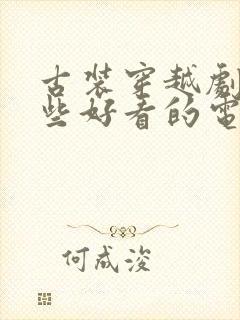 古装穿越劇
些好看的電
何成浚